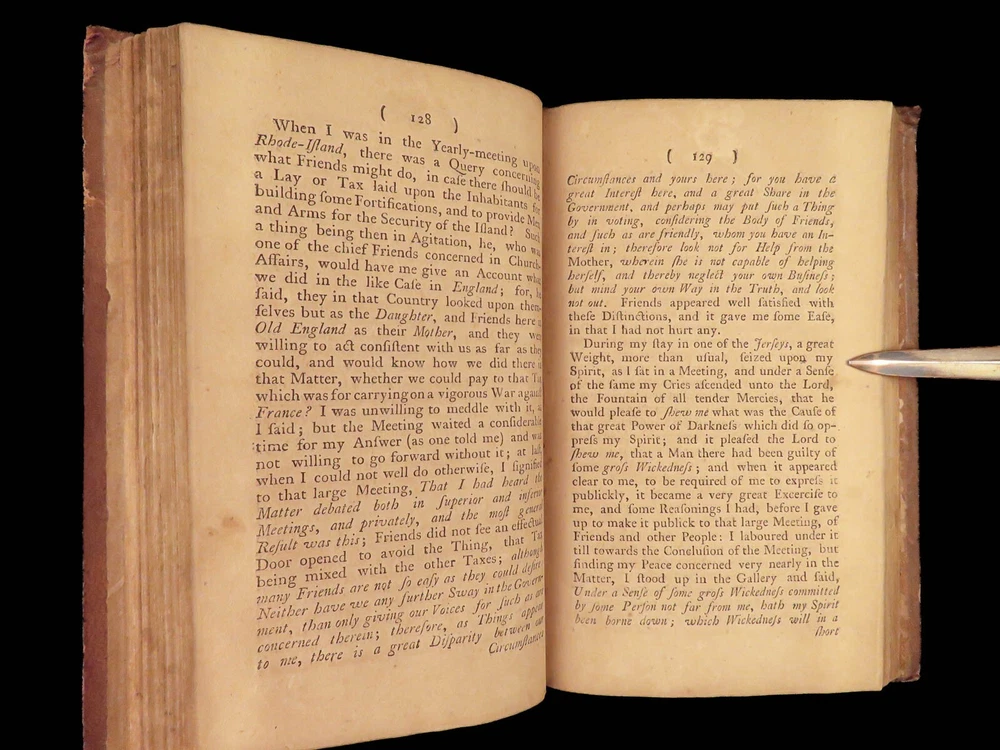 ( 128 )
When I was in the Yearly-meeting upon
Rhode-Iſland, there was a Query concerning
what Friends might do, in caſe there ſhould be
a Lay or Tax laid upon the Inhabitants for
building ſome Fortifications, and to provide Men
and Arms for the Security of the Iſland? Such
a thing being then in Agitation, he, who was
one of the chief Friends concerned in Church-
Affairs, would have me give an Account what
we did in the like Caſe in England; for, he
ſaid, they in that Country looked upon them-
ſelves but as the Daughter, and Friends here in
Old England as their Mother, and they were
willing to act conſiſtent with us as far as they
could, and would know how we did there in
that Matter, whether we could pay to that Tax
which was for carrying on a vigorous War againſt
France? I was unwilling to meddle with it, as
I ſaid; but the Meeting waited a conſiderable
time for my Anſwer (as one told me) and was
not willing to go forward without it; at laſt,
when I could not well do otherwiſe, I ſignified
to that large Meeting, That I had heard the
Matter debated both in ſuperior and inferior
Meetings, and privately, and the moſt general
Reſult was this; Friends did not ſee an effectual
Door opened to avoid the Thing, that Tax
being mixed with the other Taxes; although
many Friends are not ſo eaſy as they could deſire.
Neither have we any further Sway in the Govern-
ment, than only giving our Voices for ſuch as are
concerned therein; therefore, as Things appear
to me, there is a great Diſparity between our
Circumſtances
( 129 )
Circumſtances and yours here; for you have a
great Intereſt here, and a great Share in the
Government, and perhaps may put ſuch a Thing
by in voting, conſidering the Body of Friends,
and ſuch as are friendly, whom you have an In-
tereſt in; therefore look not for Help from the
Mother, wherein ſhe is not capable of helping
herſelf, and thereby neglect your own Buſineſs;
but mind your own Way in the Truth, and look
not out. Friends appeared well ſatisfied with
theſe Diſtinctions, and it gave me ſome Eaſe,
in that I had not hurt any.
During my ſtay in one of the Jerſeys, a great
Weight, more than uſual, ſeized upon my
Spirit, as I ſat in a Meeting, and under a Senſe
of the ſame my Cries aſcended unto the Lord,
the Fountain of all tender Mercies, that he
would pleaſe to ſhew me what was the Cauſe of
that great Power of Darkneſs which did ſo op-
preſs my Spirit; and it pleaſed the Lord to
ſhew me, that a Man there had been guilty of
ſome groſs Wickedneſs; and when it appeared
clear to me, to be required of me to expreſs it
publickly, it became a very great Exerciſe to
me, and ſome Reaſonings I had, before I gave
up to make it publick to that large Meeting, of
Friends and other People: I laboured under it
till towards the Concluſion of the Meeting, but
finding my Peace concerned very nearly in the
Matter, I ſtood up in the Gallery and ſaid,
Under a Senſe of ſome groſs Wickedneſs committed
by ſome Perſon not far from me, hath my Spirit
been borne down; which Wickedneſs will in a
ſhort